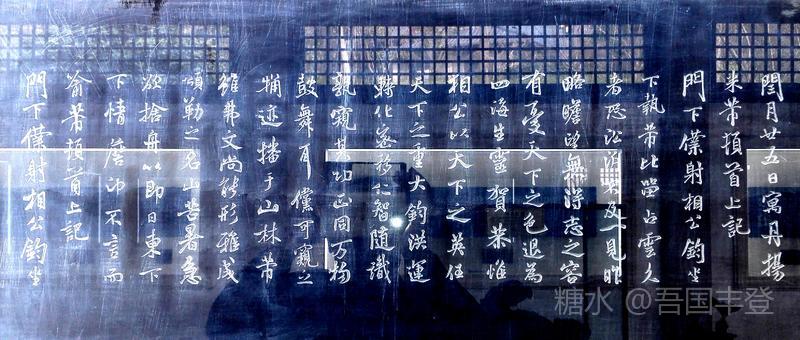 閏月廿五日寓丹揚
米芾頓首上記
門下僕射相公鈞坐
下執芾比留占雲久
者恐及一見昨
略瞻望無得志之容
有憂天下之色退為
四海生靈賀恭惟
相公以天下之英任
天下之重大鈞洪運
轉化密移仁智隨識
孰窺其功正同万物
鼓舞耳儻可窺之
迹播于山林芾
雖弗文尚能形雅成
頌勒之名山苦暑急
欲搶舟以即日東下
下情詹卬不言而
俞芾頓首上記
門下僕射相公鈞坐
糖水 @吾国丰登